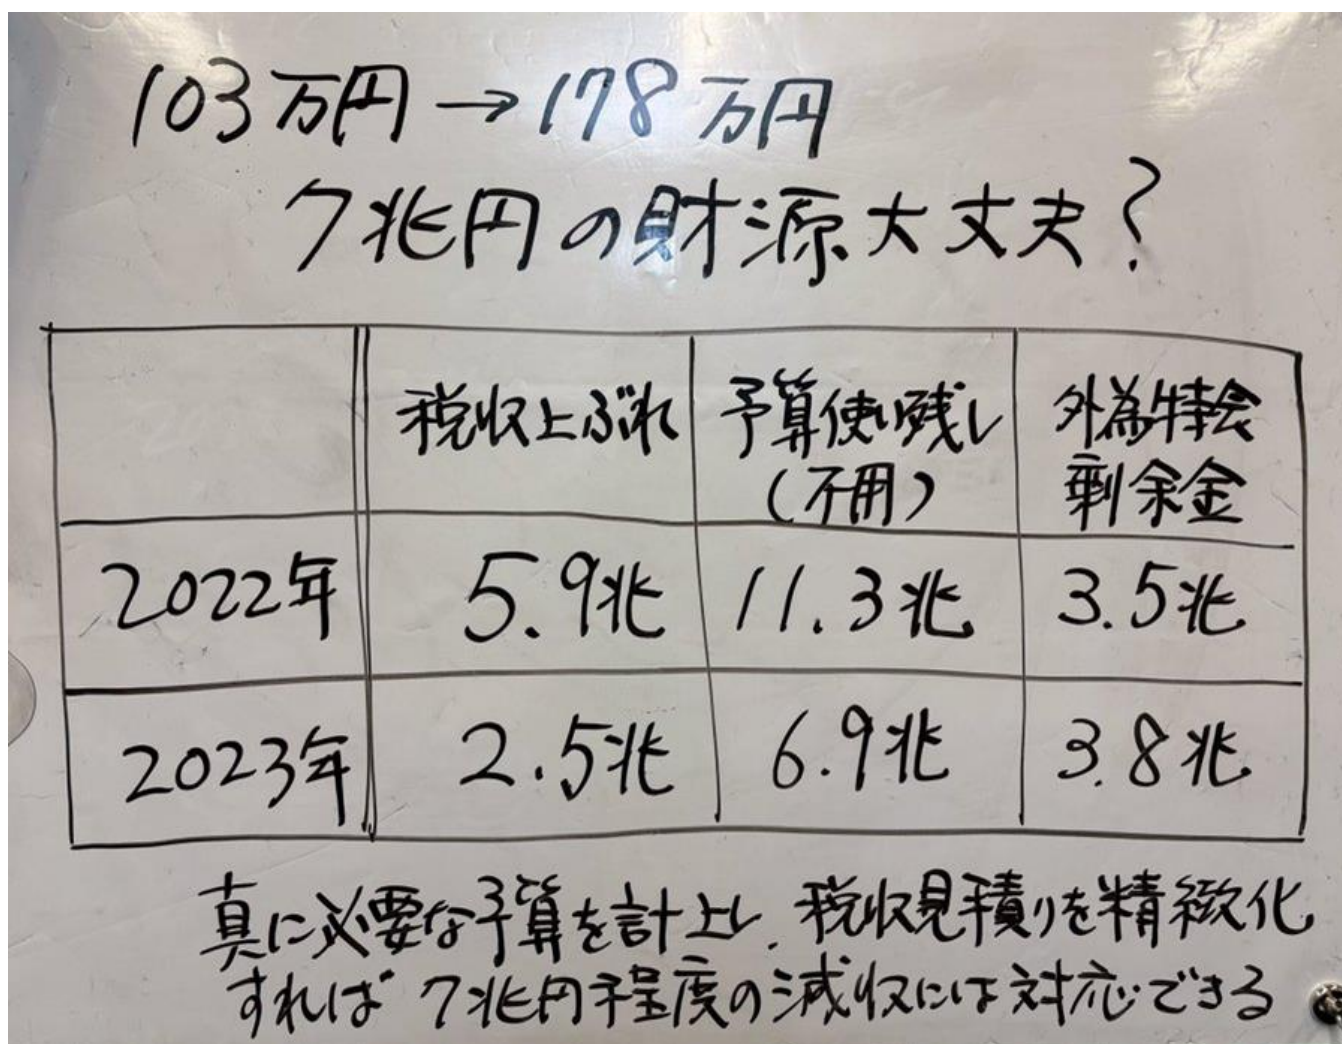 103万円→178万円
7兆円の財源大丈夫?
税収上ぶれ 予算使い残し 外為特会
(不用) 剰余金
2022年 5.9兆 11.3兆 3.5兆
2023年 2.5兆 6.9兆 3.8兆
真に必要な予算を計上し、税収見積りを精緻化
すれば7兆円程度の減収には対応できる